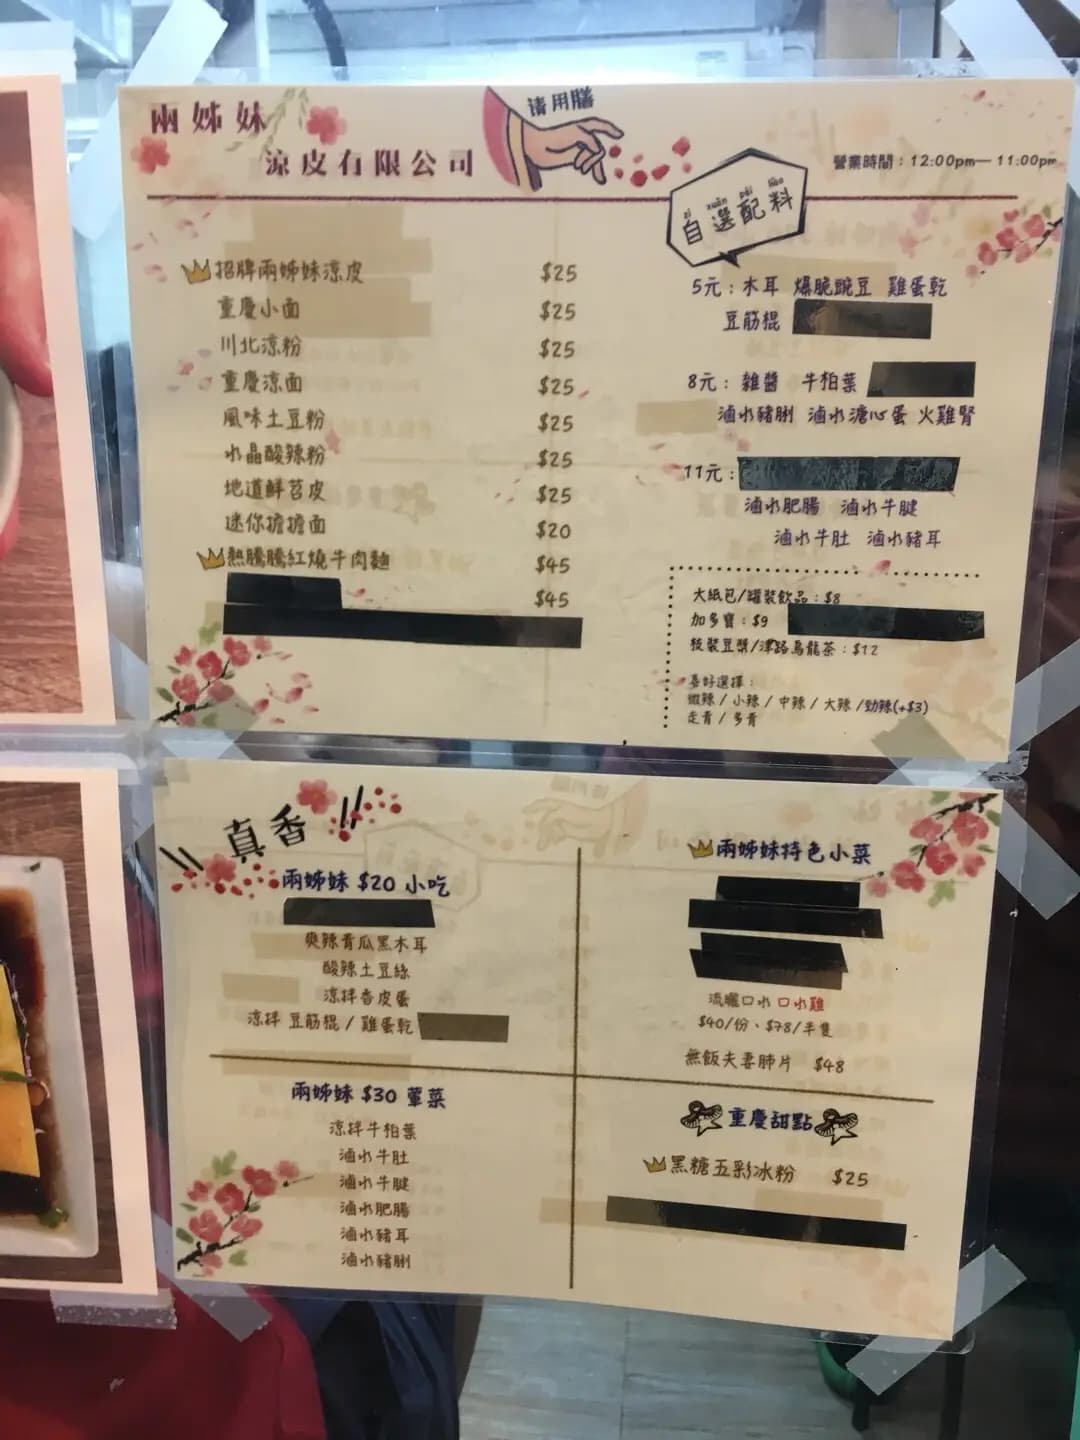 兩姊妹
涼皮有限公司
请用膳
營業時間：12:00pm— 11:00pm
zì xuǎn pèi liào
自選配料
招牌兩姊妹涼皮 $25
重慶小面 $25
川北涼粉 $25
重慶涼面 $25
風味土豆粉 $25
水晶酸辣粉 $25
地道鮮苕皮 $25
迷你擔擔面 $20
熱騰騰紅燒牛肉麵 $45
$45
5元：木耳 爆脆豌豆 雞蛋乾
豆筋棍
8元：雜醬 牛柏葉
滷水豬脷 滷水溏心蛋 火雞腎
11元：
滷水肥腸 滷水牛腱
滷水牛肚 滷水豬耳
大紙包/罐裝飲品：$8
加多寶：$9
板裝豆漿/津路烏龍茶：$12
喜好選擇：
微辣 / 小辣 / 中辣 / 大辣 /勁辣(+$3)
走青 / 多青
真香
兩姊妹 $20 小吃
爽辣青瓜黑木耳
酸辣土豆絲
涼拌香皮蛋
涼拌 豆筋棍 / 雞蛋乾
兩姊妹 $30 葷菜
涼拌牛柏葉
滷水牛肚
滷水牛腱
滷水肥腸
滷水豬耳
滷水豬脷
兩姊妹特色小菜
流曬口水 口水雞
$40/份、$78/半隻
無飯夫妻肺片 $48
重慶甜點
黑糖五彩冰粉 $25